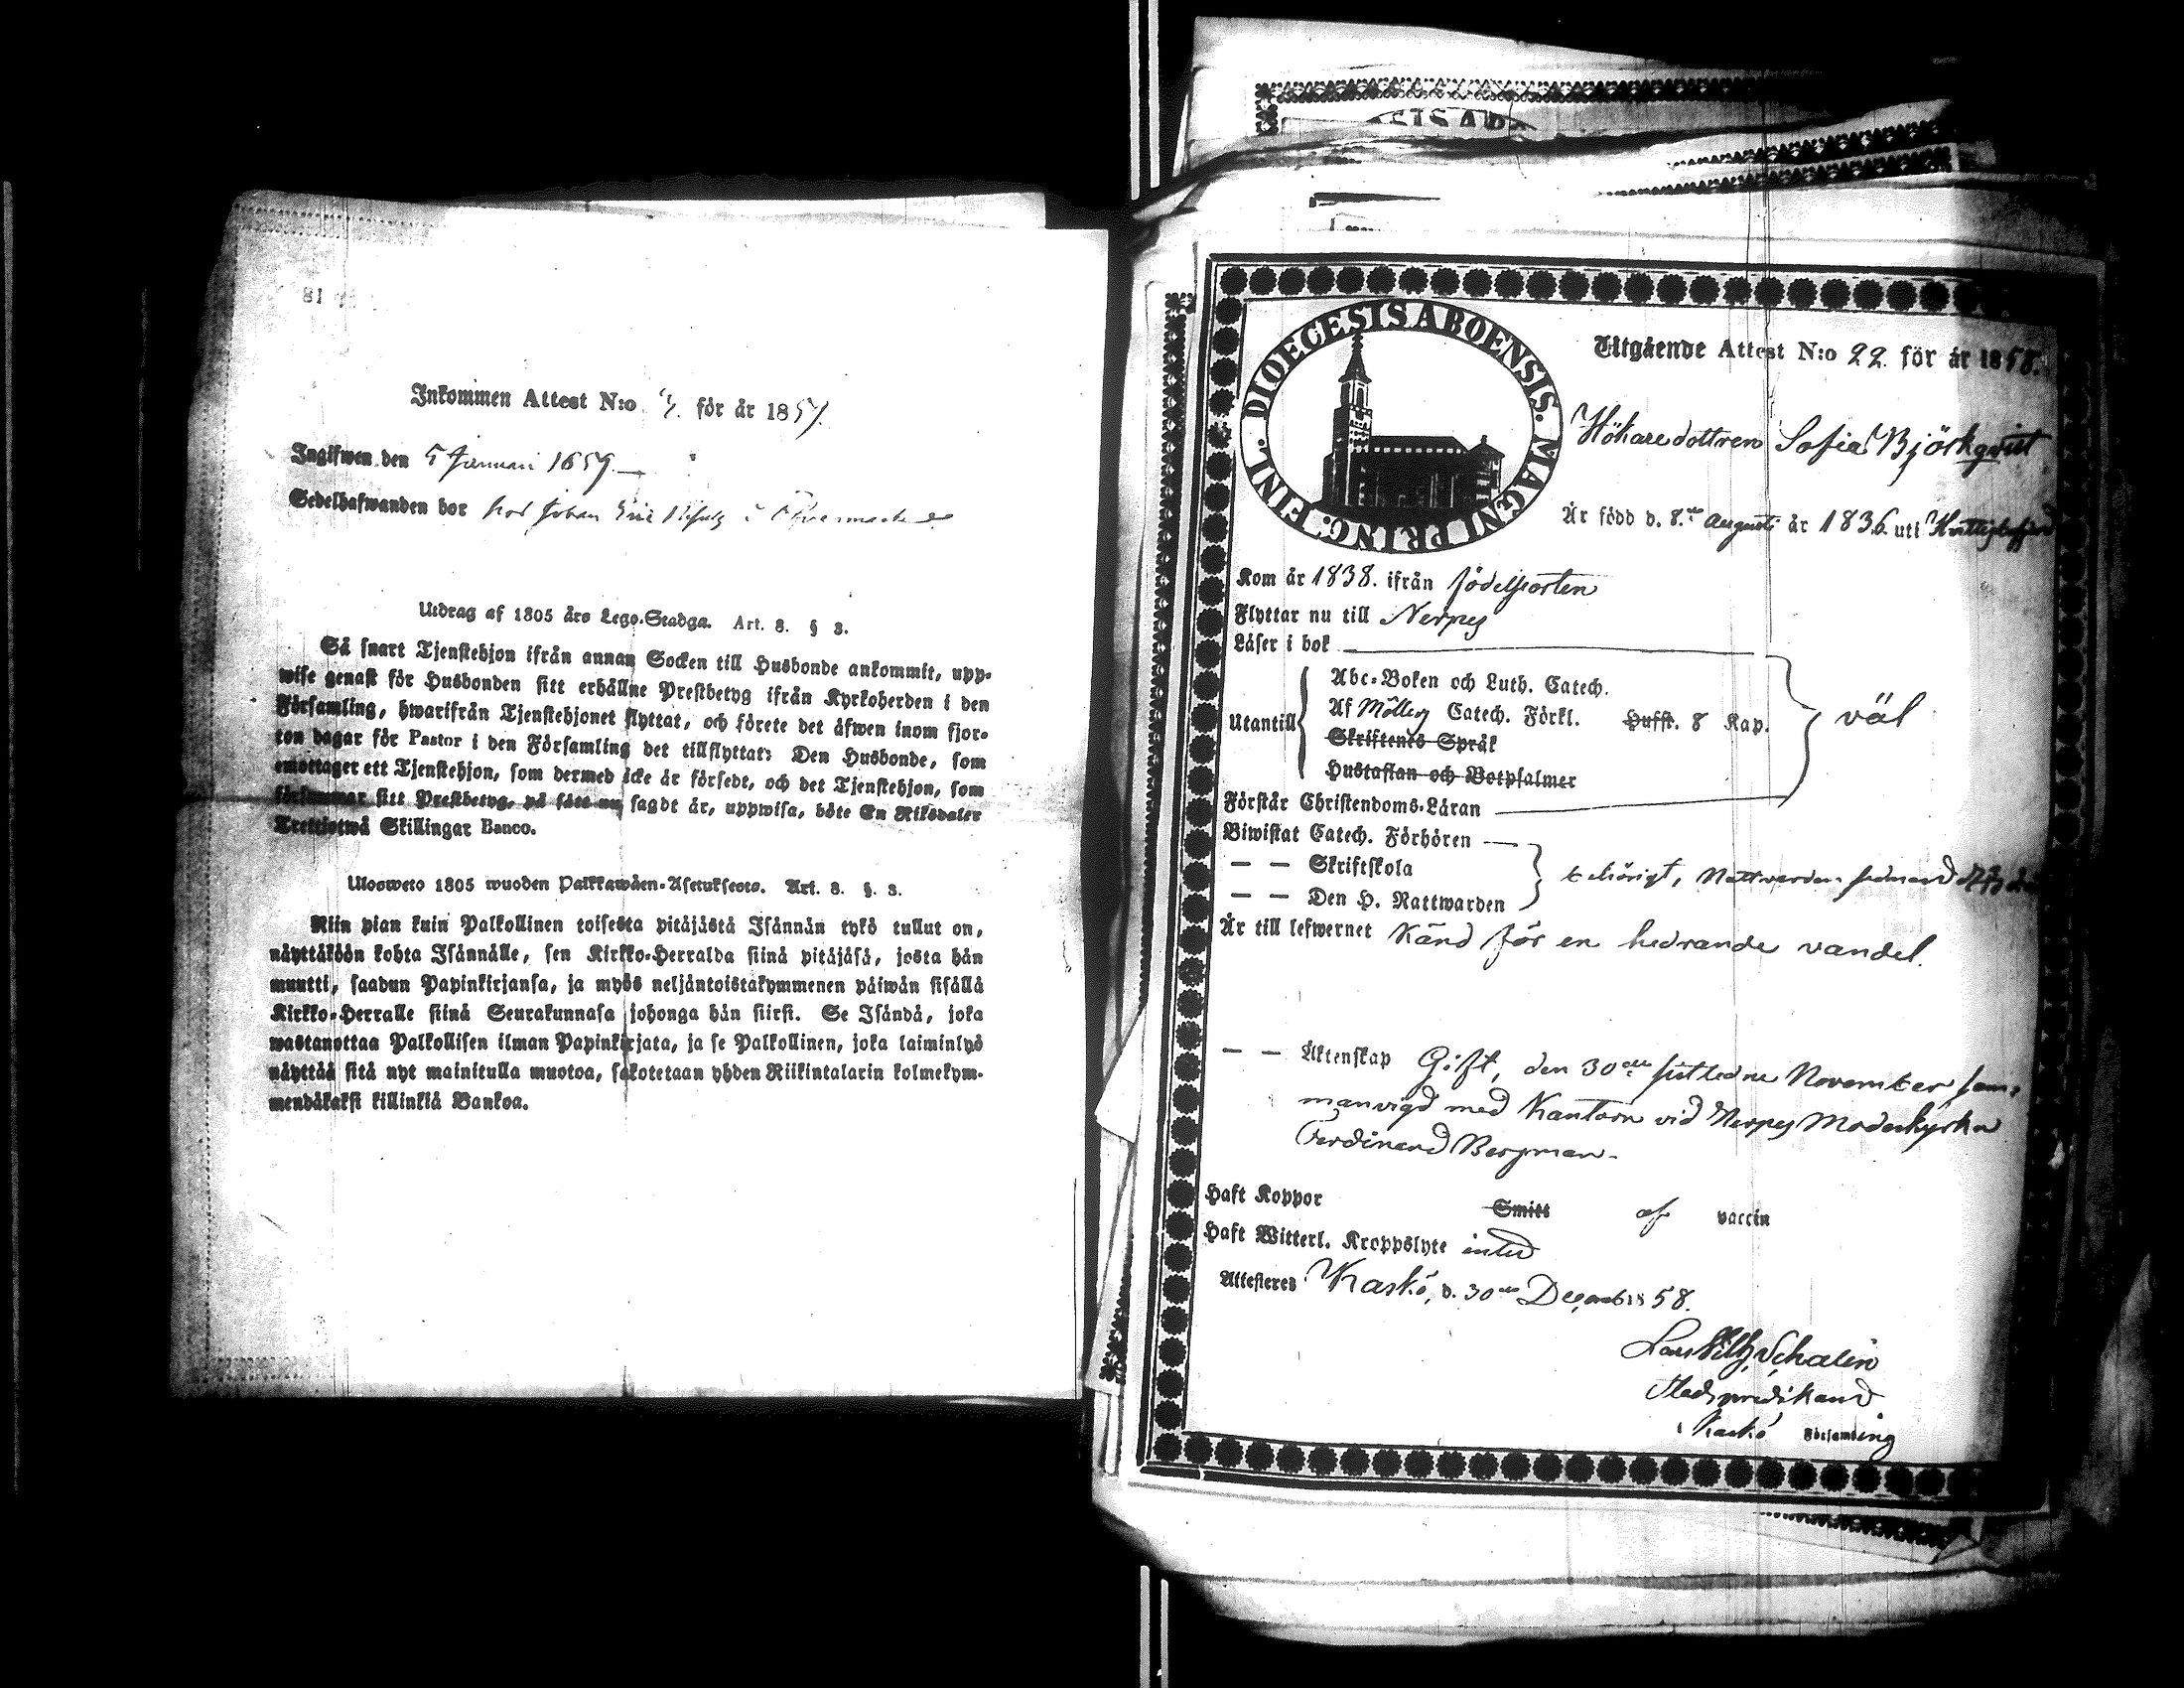 Inkommen Attest N:o 4. för år 1859.
Ingifwen den 5 Januari 1859.
Sedelhafwanden bor hos Johan Eric i
Utdrag af 1805 års Lego-Stadga. Art. 8. § 3.
Så snart Tjenstehjon ifrån annan Socken till Husbonde ankommit, upp-
wise genast för Husbonden sitt erhållne Prestbetyg ifrån Kyrkoherden i den
Församling, hwarifrån Tjenstehjonet flyttat, och förete det äfwen inom fjor-
ton dagar för Pastor i den Församling det tillflyttat: Den Husbonde, som
emottager ett Tjenstehjon, som dermed icke är försedt, och det Tjenstehjon, som
försummar sitt Prestbetyg, på sått nu sagdt är, uppwisa, böte En Riksdaler
Trettiotwå Skillingar Banco.
Ulosweto 1805 wuoden Palkkawäen-Asetuksesta. Art. 8. §. 3.
Niin pian kuin Palkollinen toisesta pitäjästä Isännän tykö tullut on,
näyttäköön kohta Isännälle, sen Kirkko-Herralda siinä pitäjäsä, josta hän
muutti, saadun Papinkirjansa, ja myös neljäntoistakymmenen päiwän sisällä
Kirkko-Herralle siinä Seurakunnasa johonga hän siirsi. Se Isändä, joka
wastanottaa Palkollisen ilman Papinkirjata, ja se Palkollinen, joka laiminlyö
näyttää sitä nyt mainitulla muotoa, sakotetaan yhden Riikintalarin kolmekym-
mendäkaksi killinkiä Bankoa.
DIOECESIS ABOENSIS. MAGNI PRINC: FINL.
Utgående Attest N:o 22. för år 1858.
Hökaredottren Sofia Björkqvist
Är född d. 8.de Augusti år 1836. uti
Kom år 1838. ifrån födelseorten
Flyttar nu till Nerpes
Läser i bok
Utantill
Abc-Boken och Luth. Catech.
Af Möllers Catech. Förkl. Hufst. 8 Kap.
Skriftenes Språk
Hustaflan och Botpsalmer
väl
Förstår Christendoms-Läran
Biwistat Catech. Förhören
— — Skriftskola
— — Den H. Nattwarden
behörigt, Nattvarden sednast
Är till lefwernet Känd för en hedrande vandel.
— — Äktenskap Gift, den 30de sistledne November sam-
manvigd med Kantorn vid Nerpes Moderkyrka
Ferdinand Bergman.
Haft Koppor Smitt af vaccin
Haft Witterl. Kroppslyte intet
Attesteres Kaskö, d. 30de Decemb 1858.
Lars Wilh. Schalin
Stadspredikand
i Kaskö Församling